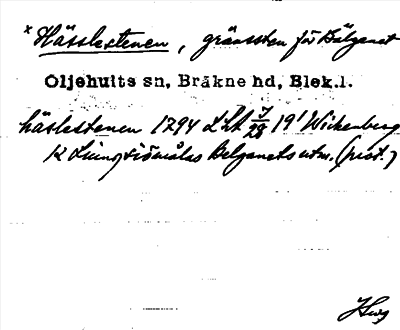 * Hässlestenen, gränssten för Bälganet
Oljehults sn, Bräkne hd, Blek.l.
häslestenen 1794 LSA 7/28 19¹ Wickenberg
K Ljungsiömålas Belganets utm. (prot.)